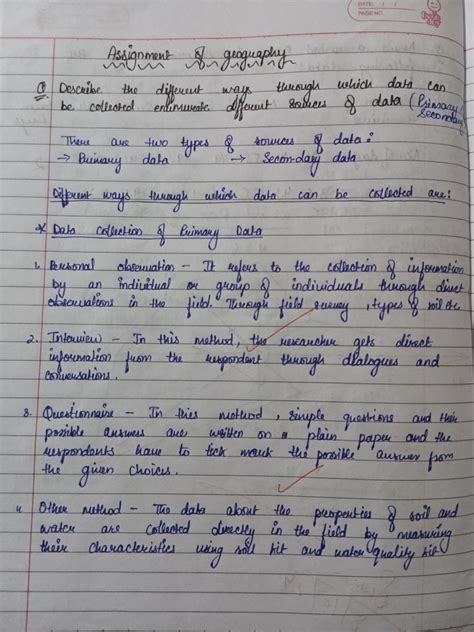 DATE: / /
PAGE NO.
Assignment of geography
Q Describe the different ways through which data can
be collected enumerate different sources of data (Primary
Secondary)
There are two types of sources of data:
→ Primary data → Secondary data
Different ways through which data can be collected are:
* Data Collection of Primary Data
1. Personal observation - It refers to the collection of information
by an individual or group of individuals through direct
observations in the field. Through field survey, types of soil etc.
2. Interview - In this method, the researcher gets direct
information from the respondent through dialogues and
conversations.
3. Questionnaire - In this method, simple questions and their
possible answers are written on a plain paper and the
respondents have to tick mark the possible answer from
the given choices.
4. Other method - The data about the properties of soil and
water are collected directly in the field by measuring
their characteristics using soil kit and water quality kit